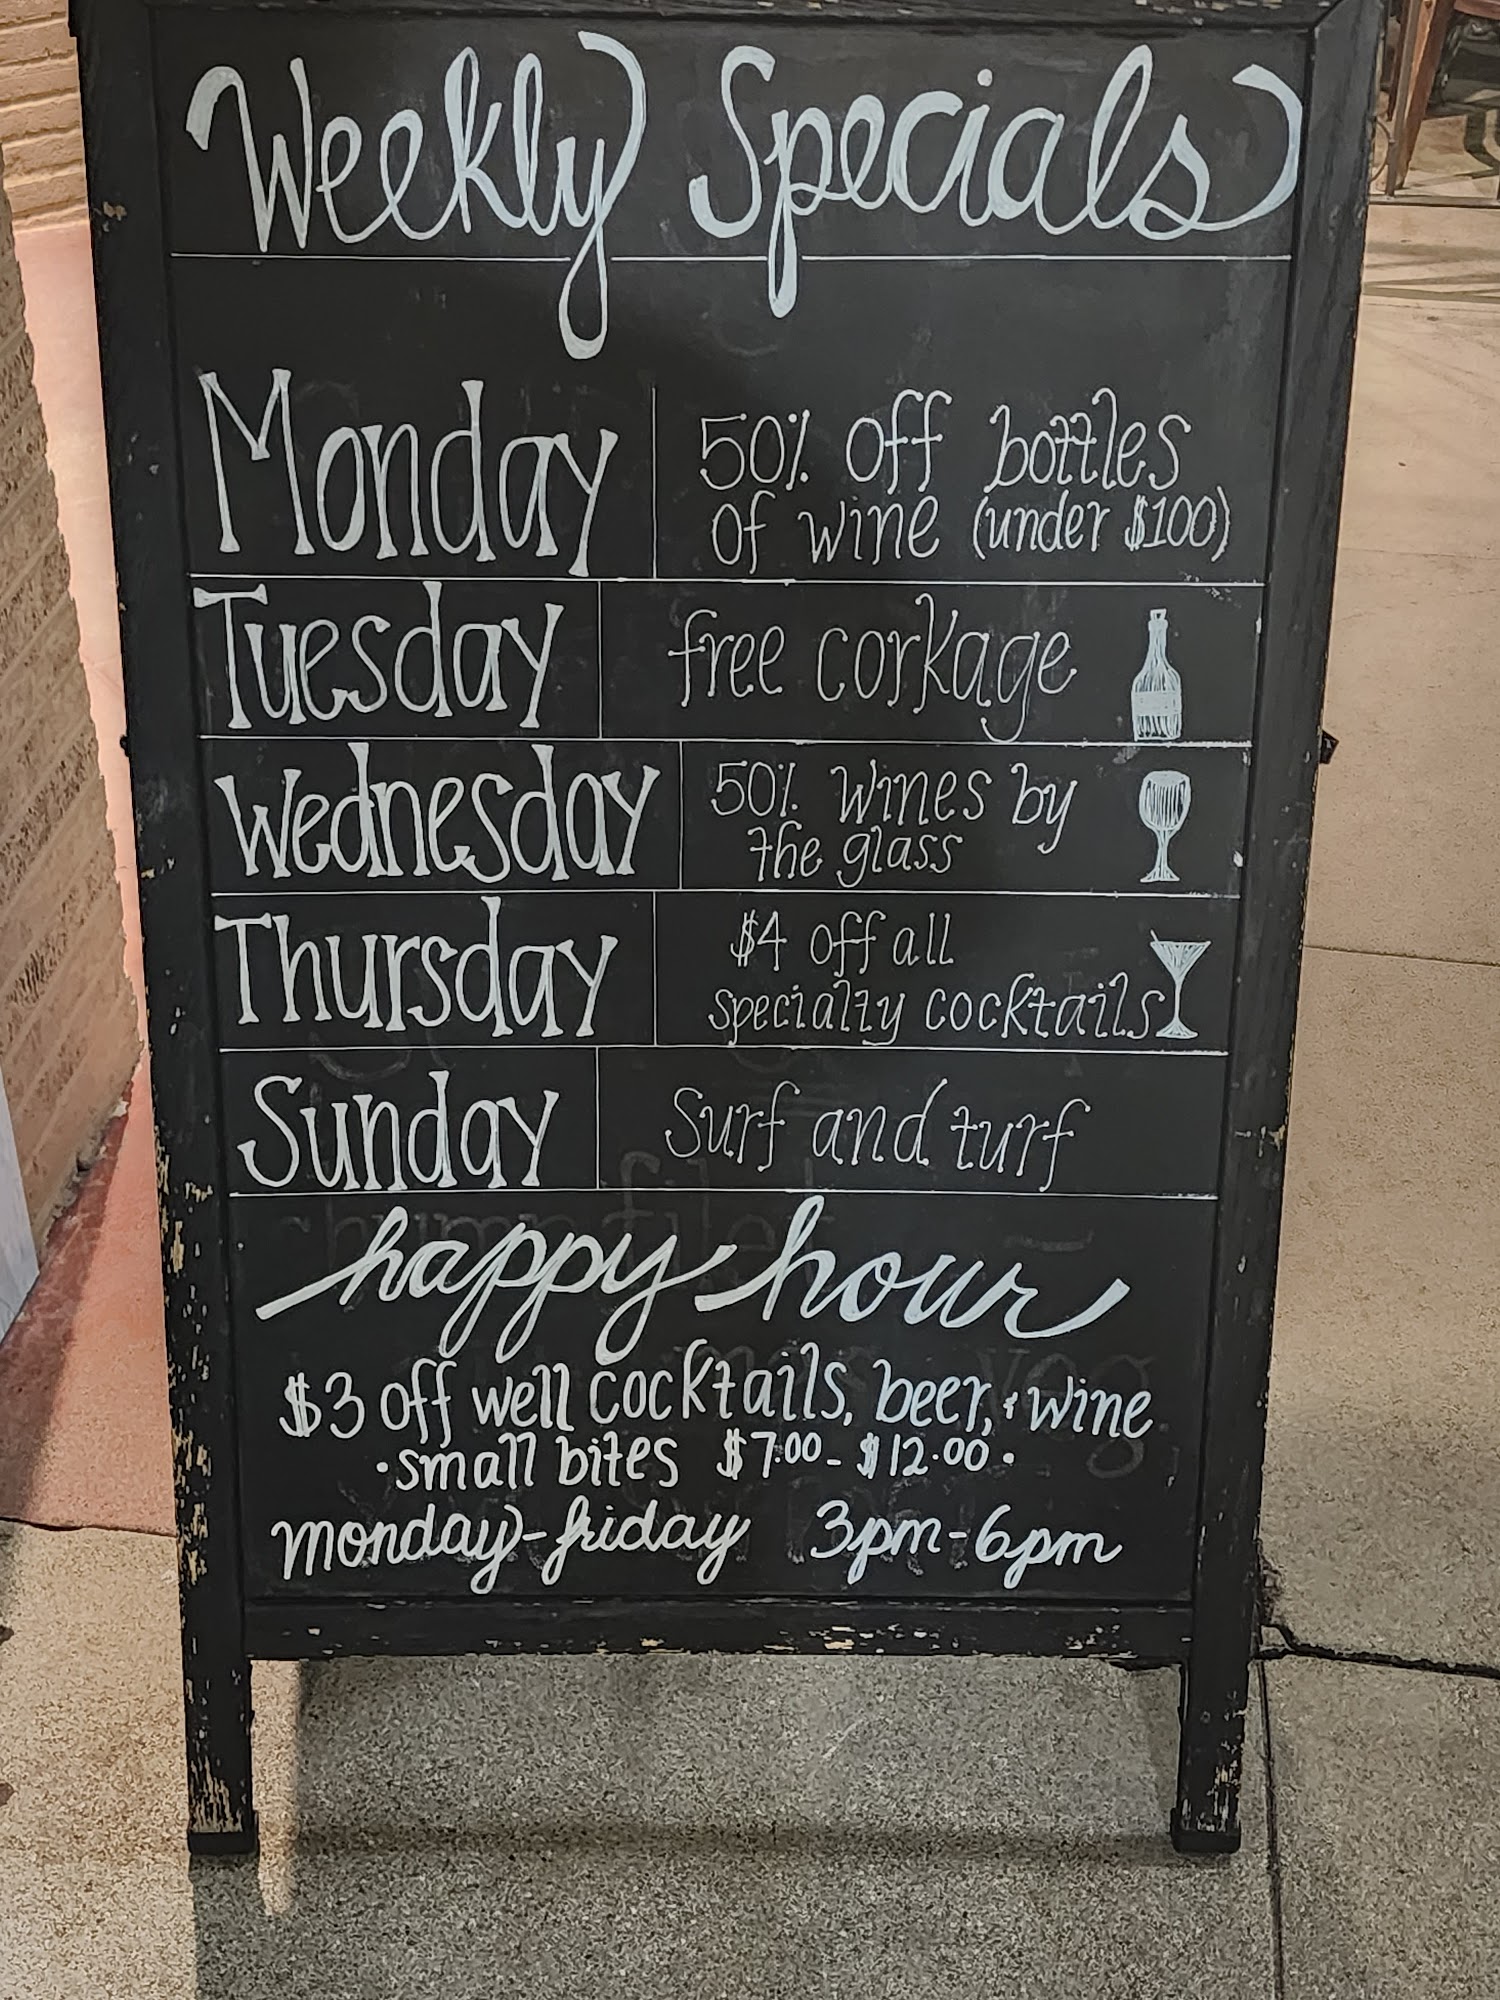 Weekly Specials
Monday
50% off bottles
of wine (under $100)
Tuesday
free corkage
Wednesday
50% wines by
the glass
Thursday
$4 off all
specialty cocktails
Sunday
Surf and turf
happy hour
$3 off well cocktails, beer, & wine
• small bites $7.00 - $12.00 •
monday-friday 3pm-6pm